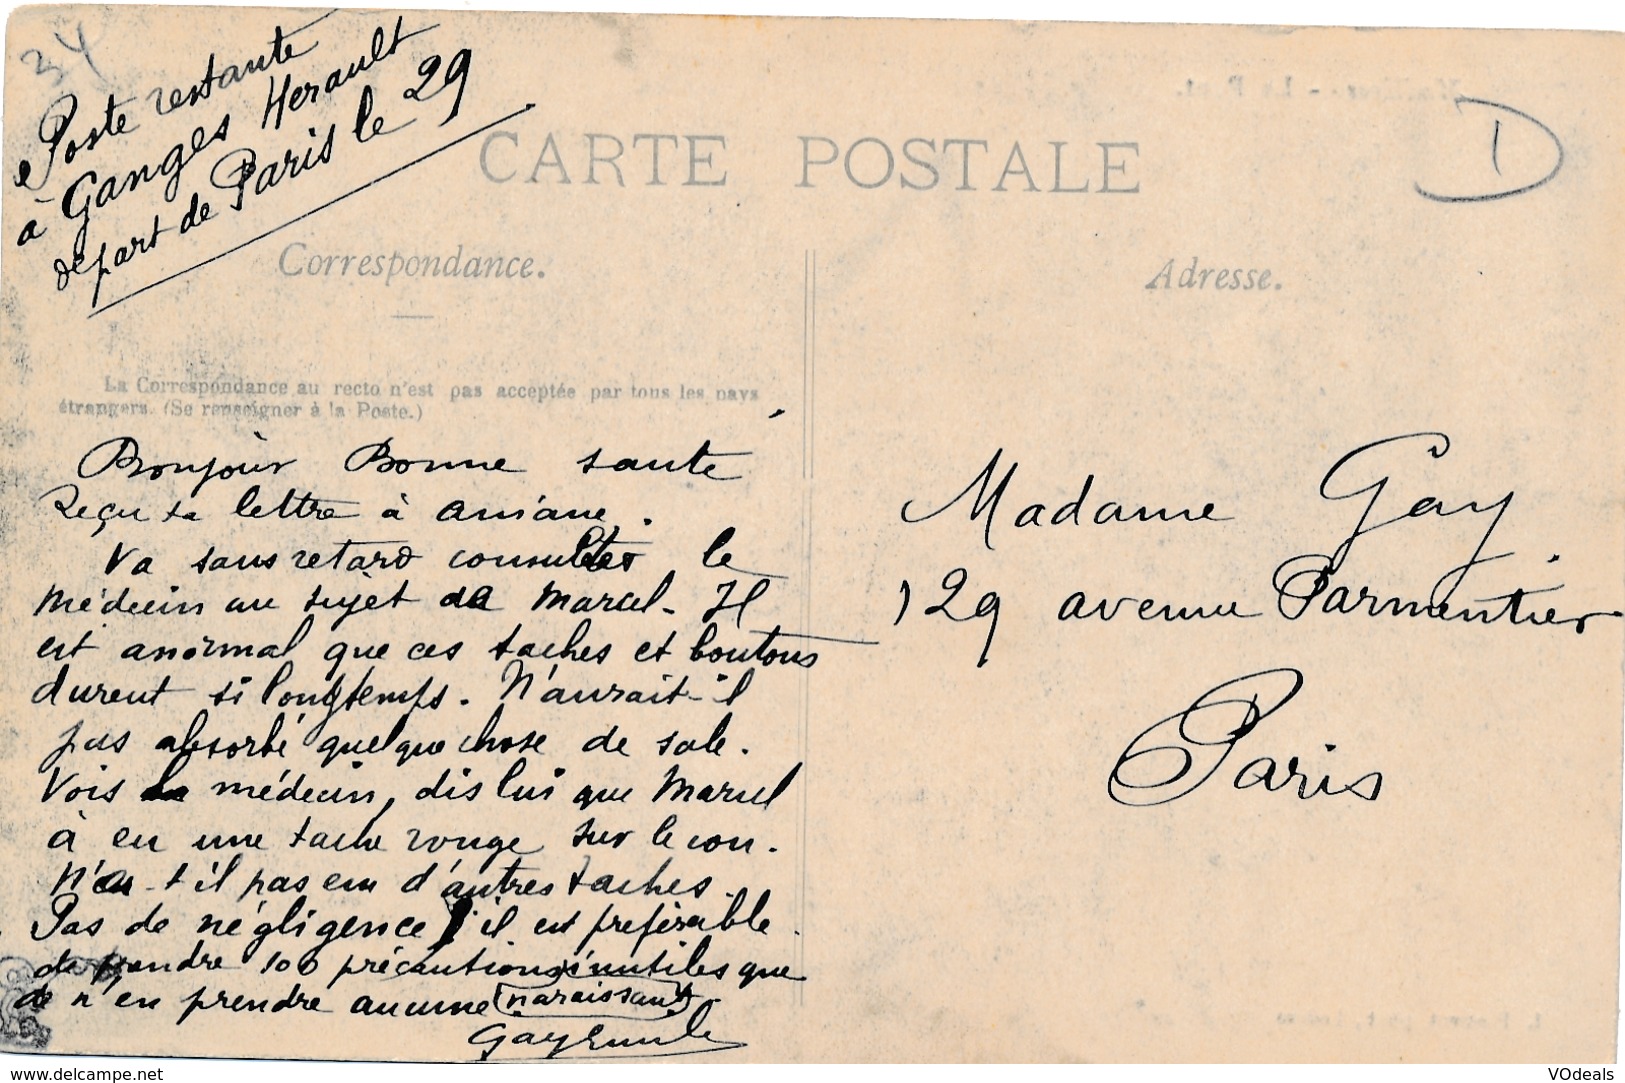 34
Poste restante
à Ganges Herault
départ de Paris le 29
CARTE POSTALE
D
Correspondance.
Adresse.
La Correspondance au recto n'est pas acceptée par tous les pays
étrangers. (Se renseigner à la Poste.)
Bonjour Bonne santé
Reçu ta lettre à Aniane.
Va sans retard consulter le
médecin au sujet de Marcel. Il
est anormal que ces taches et boutons
durent si longtemps. N'aurait-il
pas absorbé quelque chose de sale.
Vois le médecin, dis lui que Marcel
à eu une tache rouge sur le cou.
N'a-t il pas eu d'autres taches.
Pas de négligence, il est préférable
de prendre 100 précautions inutiles que
de n'en prendre aucune
Gay Emile
Madame Gay
129 avenue Parmentier
Paris
www.delcampe.net
VOdeals